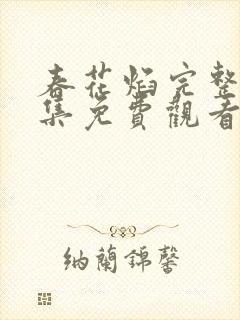 春花焰完整
集免費觀看
納蘭錦馨